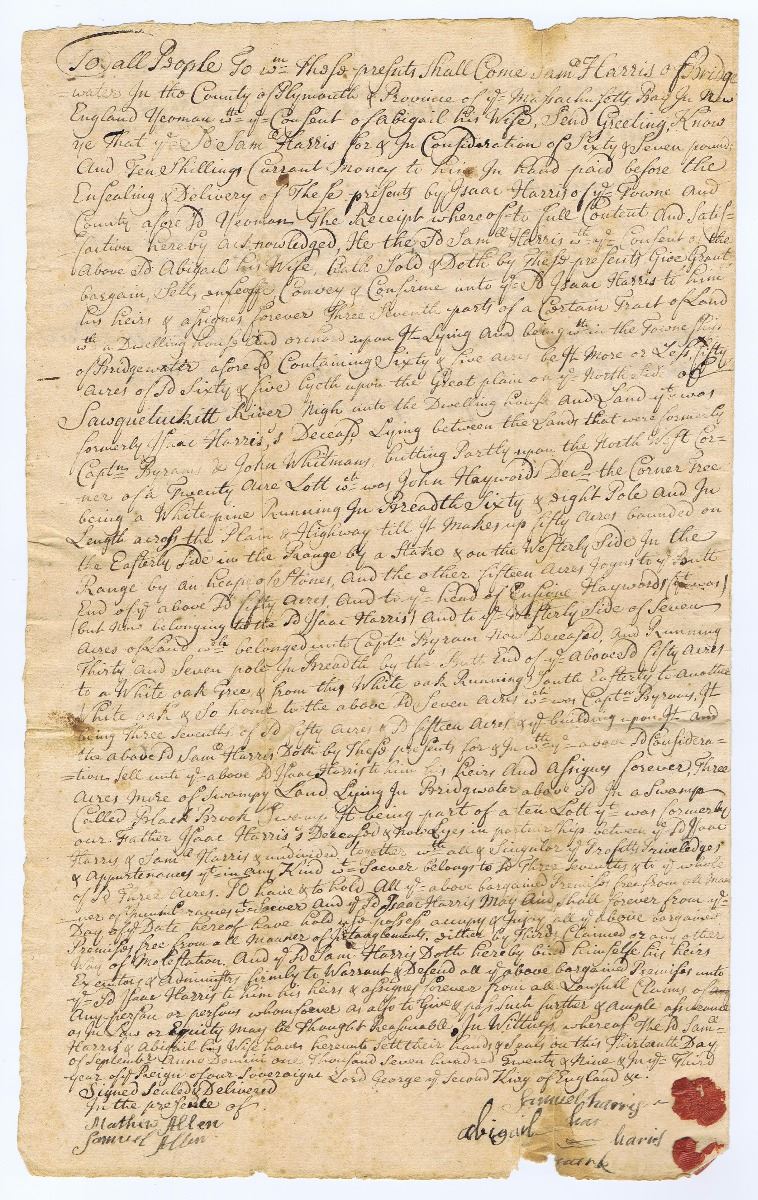 To all People To wm these presents Shall Come Samll Harris of Bridge
=water In the County of Plymouth & Province of ye Massachusetts Bay In New
England Yeoman wth ye Consent of Abigail his Wife, Send Greeting, Know
ye That ye Sd Samll Harris for & In Consideration of Sixty & Seven pounds
And Ten Shillings Currant Money to him In hand paid before the
Ensealing & Delivery of These presents by Isaac Harris of ye Towne And
County afore Sd Yeoman The Receipt whereof to full Content And Satis=
faction hereby Acknowledged, He the Sd Samll Harris wth ye Consent of the
Above Sd Abigail his Wife, hath Sold & Doth by These presents Give Grant
bargain, Sell, enfeoffe Convey & Confirme unto ye Sd Isaac Harris to him
his heirs & assignes forever Three Seventh parts of a Certain Tract of Land
wth a Dwelling house And orchard upon It Lying And being wth in the Towne Ship
of Bridgewater afore Sd Containing Sixty & five acres be It More or Less, fifty
Acres of Sd Sixty & five Lyeth upon the Great plain on ye North Side of
Sawquetuckitt River nigh unto the Dwelling house And Land yt was
formerly Isaac Harris,s Deceasd Lying between the Lands that were formerly
Captn Byrams & John Whitmans, butting Partly upon the North West Cor=
ner of a Twenty Acre Lott wch was John Haywords Decd the Corner Tree
being a White pine Running In Breadth Sixty & eight Pole And In
Length across the Plain & Highway till It Makes up fifty Acres bounded on
the Easterly Side in the Range by a Stake & on the Westerly Side In the
Range by an heape of Stones, And the other fifteen Acres Joyns to ye South
End of ye above Sd fifty Acres And to ye head of Ensigne Haywords (yt was)
(but Now belonging to the Sd Isaac Harris) And to ye Westerly Side of Seven
Acres of Land wch belonged unto Captn Byram Now Deceased, And Running
Thirty And Seven pole In Breadth by the Butt End of ye Above Sd fifty Acres
to a White oak Tree & from this White oak Running South Easterly to Another
White oak & So home to the above Sd Seven Acres wch was Captn Byrams, It
being three Sevenths of Sd fifty Acres & Sd fifteen Acres & ye building upon It And
the above Sd Samll Harris Doth by These presents for & In wth ye above Sd Considera=
=tion Sell unto ye above Sd Isaac Harris to him his heirs And Assignes forever, Three
Acres More of Swampy Land Lying In Bridgwater above Sd In a Swamp
Called Black Brook Swamp It being part of a ten Lott yt was formerly
our Father Isaac Harris's Deceased & Now Lyes in partnership between ye Sd Isaac
Harris & Samll Harris & undivided together wth all & Singular ye Profits Priveledges
& Appurtenances yt in any Kind wt Soever belongs to Sd Three Sevenths & to ye whole
of Sd Three Acres. TO have & to hold All ye above bargained Premises free from all Man=
ner of Soever And ye Sd Isaac Harris May And Shall forever from ye
Day of ye Date hereof have hold use possess occupy & Injoy all ye Above bargained
Premises free from all Manner of Intanglements, either by Claimed or any other
Way of Molestation, And ye Sd Sam Harris Doth hereby bind himselfe his heirs
Executors & Administrs firmly to Warrant & Defend all ye above bargained Premises unto
ye Sd Isaac Harris to him his heirs & assignes forever from all Lawfull Claims of
Any person or persons whomsoever as also to Give & pass Such further & Ample assurance
as In Law or Equity May be Thought Reasonable, In Wittness whereof The Sd Samll
Harris & Abigail his Wife have hereunto Sett their hands & Seals on this Thirteenth Day
of September Anno Domini one Thousand Seven hundred Twenty & Nine & In ye Third
year of ye Reign of our Soveraigne Lord George ye Second King of England &c.
Signed Sealed & Delivered
In the presence of
Mathew Allen
Samuel Allen
Samuel harris
his
Abigail harris
mark